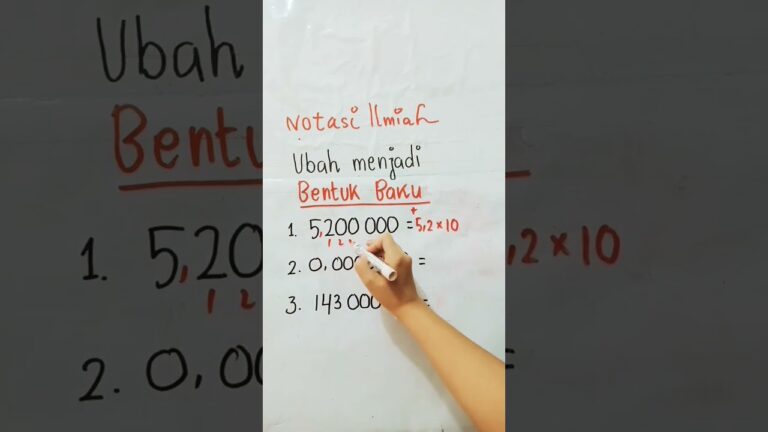 Notasi Ilmiah
Ubah menjadi
Bentuk Baku
+
1. 5,200 000 = 5,2 × 10
1 2
2. 0,00 =
3. 143 000 =